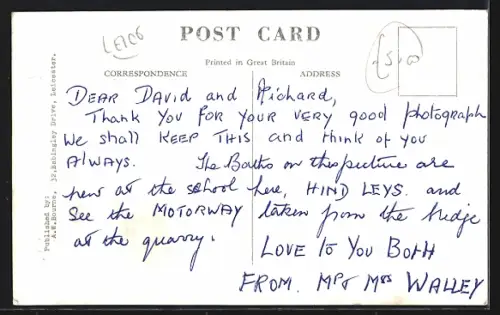 LEICS
POST CARD
£5.00
Printed in Great Britain
CORRESPONDENCE
ADDRESS
DEAR DAVID and Richard,
Thank You FOR YOUR VERY good photograph
We shall KEEP THIS and think of you
Always. The Baths on this picture are
new at the school here, HIND LEYS. and
See the MOTORWAY taken from the bridge
at the quarry.
LOVE to You Both
FROM. Mr & Mrs WALLEY
Published by:
A.E.Bourne, 32, Babingley Drive, Leicester.